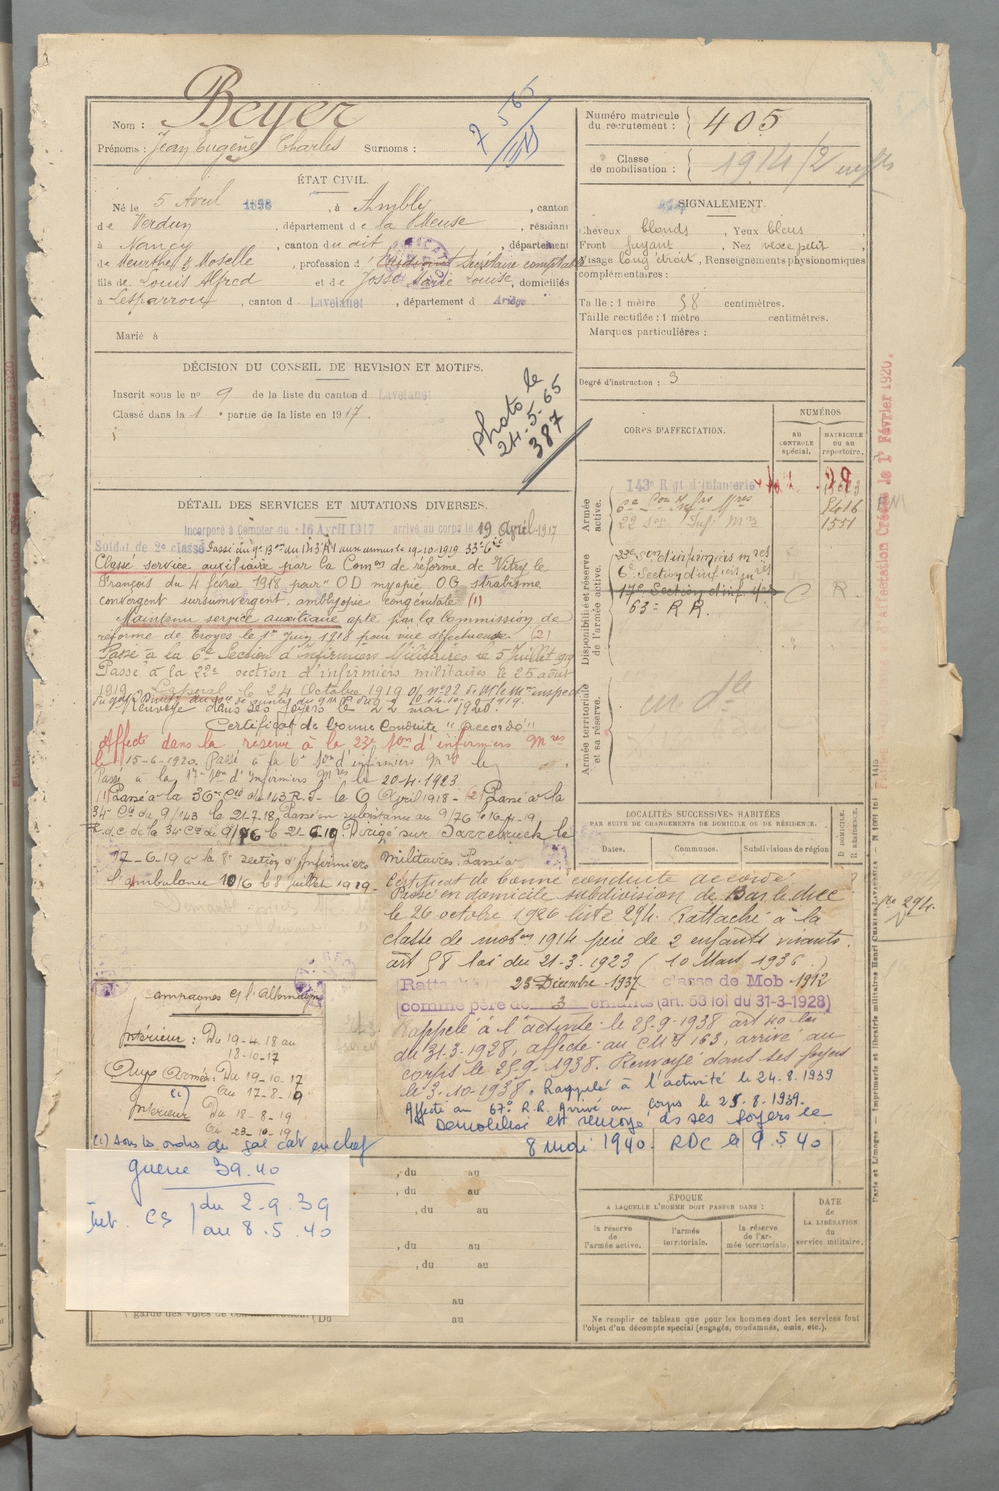 Nom : Beyer
Prénoms : Jean Eugène Charles Surnoms :
7 565
Numéro matricule du recrutement : 405
Classe de mobilisation : 1914/2
ÉTAT CIVIL.
Né le 5 Avril 1898, à Ambly, canton
de Verdun, département de la Meuse, résidant
à Nancy, canton du dit, département
de Meurthe & Moselle, profession d' secrétaire comptable
fils de Louis Alfred et de Josse Marie Louise, domiciliés
à Lesparrou, canton d Lavelanet, département d Ariège
Marié à
SIGNALEMENT.
Cheveux blonds, Yeux bleus
Front fuyant, Nez
Visage long étroit, Renseignements physionomiques
complémentaires :
Taille : 1 mètre 58 centimètres.
Taille rectifiée : 1 mètre centimètres.
Marques particulières :
Degré d'instruction : 3
DÉCISION DU CONSEIL DE REVISION ET MOTIFS.
Inscrit sous le n° 9 de la liste du canton d Lavelanet
Classé dans la 1e partie de la liste en 1917.
photo le
24-5-65
387
CORPS D'AFFECTATION.
NUMÉROS
AU CONTRÔLE spécial.
MATRICULE OU AU répertoire.
Armée active.
143e Rgt d'Infanterie
6e Son d'Inf Mres 8416
22 sec Inf Mres 1551
Disponibilité et réserve de l'armée active.
23e Son d'infirmiers mres
6e Section d'inf mres
17e Section d'inf. C R
63e R.R.
Armée territoriale et sa réserve.
Affectation Créée le 1r Février 1920.
DÉTAIL DES SERVICES ET MUTATIONS DIVERSES.
Incorporé à compter du 16 Avril 1917 arrivé au corps le 19 Avril 1917
Soldat de 2e classe Passé au 9e Bon du 143e RI
Classé service auxiliaire par la Comon de réforme de Vitry le
Français du 4 février 1918 pour "OD myopie OG strabisme
convergent sursumvergent, amblyopie congénitale (1)
Maintenu service auxiliaire apte par la commission de
réforme de Troyes le 1er Juin 1918 pour vue défectueuse (2)
Passé à la 6e Section d'Infirmiers Militaires le 5 Juillet 1919
Passé à la 22e section d'infirmiers militaires le 25 août
1919. Caporal le 24 Octobre 1919
Renvoyé dans ses foyers le 22 mai 1920.
Certificat de bonne Conduite "accordé"
Affecté dans la réserve à la 23e son d'infirmiers Mres
le 15-6-1920. Passé à la 6e son d'infirmiers Mres le
Passé à la 17e son d'Infirmiers Mres le 20-4-1923
(1) Passé à la 36e Cie du 143 R.I. le 6 Avril 1918 - (2) Passé à la
34e Cie du 9/143 le 21-7-18, Passé en subsistance au 9/76 le 16-4-19
R.d.c. de la 34 Cie du 9/76 le 21-6-19. Dirigé sur Sarrebruck le
27-6-19 à la 8e section d'Infirmiers militaires. Passé à
l'ambulance 10/6 le 8 juillet 1919
Certificat de bonne conduite accordé.
Passé en domicile subdivision de Bar le duc
le 26 octobre 1926 liste 294. Rattaché à la
classe de mobon 1914 père de 2 enfants vivants.
art 58 loi du 31-3-1923 (10 Mars 1936.)
23 Décembre 1937 classe de Mob 1912
comme père de 3 enfants (art. 58 loi du 31-3-1928)
Rappelé à l'activité le 25-9-1938 art 40 loi
du 31-3-1928, affecté au CM 163, arrivé au
corps le 25-9-1938. Renvoyé dans ses foyers
le 3-10-1938. Rappelé à l'activité le 24-8-1939
Affecté au 67e R.R. Arrivé au corps le 25-8-1939.
Démobilisé et renvoyé ds ses foyers le
8 mai 1940. RDC le 9.5.40
LOCALITÉS SUCCESSIVES HABITÉES
PAR SUITE DE CHANGEMENTS DE DOMICILE OU DE RÉSIDENCE.
Dates. Communes. Subdivisions de région
D. DOMICILE. R. RÉSIDENCE.
294.
Campagnes C/ l'Allemagne
Intérieur : Du 19-4-18 au
18-10-17
Aux Armées : Du 19-10-17
au 17-8-19
(1)
Intérieur Du 18-8-19
au 23-10-19
(1) Sous les ordres du gal cdt en chef
guerre 39.40
Int. CS du 2.9.39
au 8.5.40
, du au
, du au
, du au
, du au
, du au
au
(Du au
ÉPOQUE
A LAQUELLE L'HOMME DOIT PASSER DANS :
la réserve de l'armée active.
l'armée territoriale.
la réserve de l'armée territoriale.
DATE de LA LIBÉRATION du service militaire.
Ne remplir ce tableau que pour les hommes dont les services font
l'objet d'un décompte spécial (engagés, condamnés, omis, etc.).
Paris et Limoges. — Imprimerie et librairie militaires Henri CHARLES-LAVAUZELLE